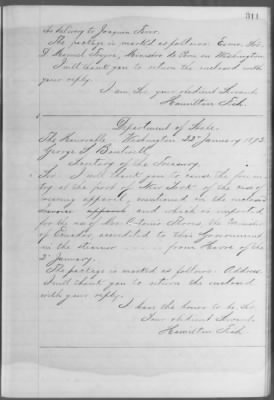 311
as belong to Joaquin
The package is marked as follows: Exmo. Sr.
D. Manuel Freyre, Ministro de Peru en Washington
I will thank you to return the enclosed with
your reply.
I am, Sir, your obedient Servant,
Hamilton Fish.
Department of State.
The Honorable Washington 22d January 1873
George S. Boutwell
Secretary of the Treasury.
Sir: I will thank you to cause the free en-
try at the port of New York of the case of
wearing apparel, mentioned in the enclosure
and which is imported
for the use of Don Antonio Flores the Minister
of Ecuador, accredited to this Government
in the steamer from Havre of the
2d January.
The package is marked as follows: Address.
I will thank you to return the enclosed
with your reply.
I have the honor to be, Sir,
Your obedient Servant,
Hamilton Fish